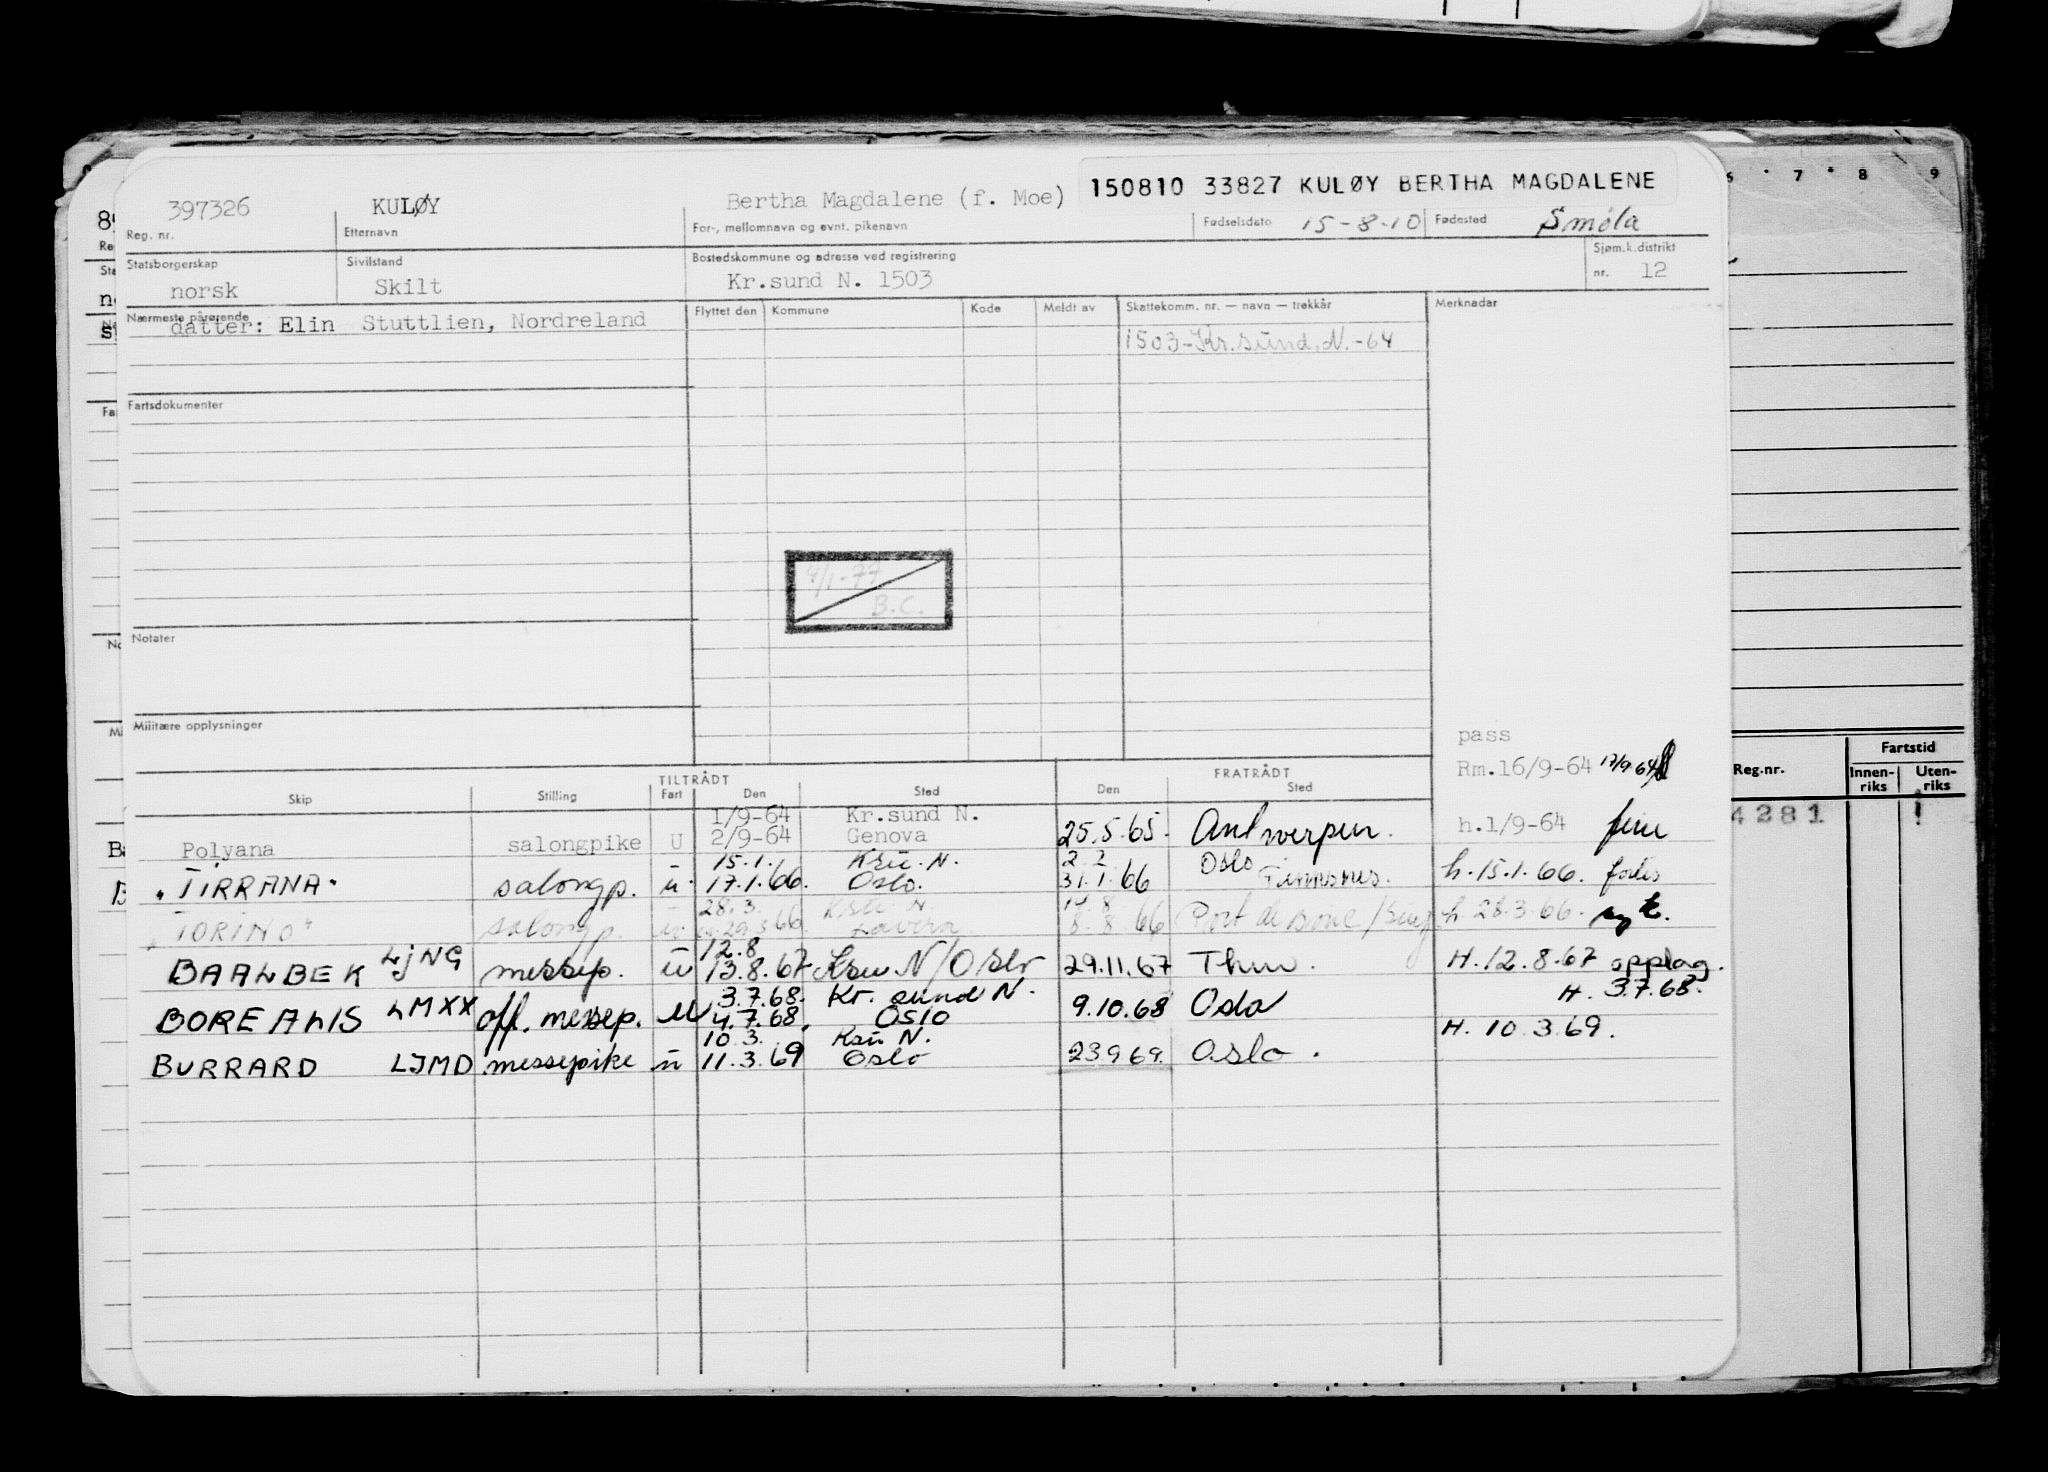 150810 33827 KULØY BERTHA MAGDALENE
397326 KULØY Bertha Magdalene (f. Moe) 15-8-10 Smøla
Reg. nr. Etternavn For-, mellomnavn og evnt. pikenavn Fødselsdato Fødested
Statsborgerskap Sivilstand Bostedskommune og adresse ved registrering Sjøm.k.distrikt
norsk Skilt Kr.sund N. 1503 nr. 12
Nærmeste pårørende Flyttet den Kommune Kode Meldt av Skattekomm. nr. — navn — trekkår Merknadar
datter: Elin Stuttlien, Nordreland
1503-Kr.sund.N.-64
Fartsdokumenter
9/1-77
B.C.
Notater
Militære opplysninger
pass
Rm.16/9-64 17/9 64
TILTRÅDT FRATRÅDT
Skip Stilling Fart Den Sted Den Sted
1/9-64 Kr.sund N.
Polyana salongpike U 2/9-64 Genova 25.5.65. Antwerpen. h.1/9-64 ferie
15.1. Ksu. N. 2.2 Oslo
"TIRRANA" salongp. u 17.1.66. Oslo. 31.1.66 h.15.1.66.
28.3. Ksu N.
"TORINO" salongp. u 29.3 66 Lavera 8.8.66 h 28.3.66. syk.
12.8
BAALBEK LJNG messep. u 13.8.67 Ksu N/Oslo 29.11.67 H.12.8.67 opplag.
3.7.68. Kr. sund N. H. 3.7.68.
BOREALIS LMXX off. messep. u 4.7.68. Oslo 9.10.68 Oslo
10.3. Ksu N. H. 10.3.69.
BURRARD LJMD messepike u 11.3.69 Oslo 23.9.69. Oslo.
6 7 8 9
Reg.nr. Fartstid
Innen-riks Uten-riks
4281